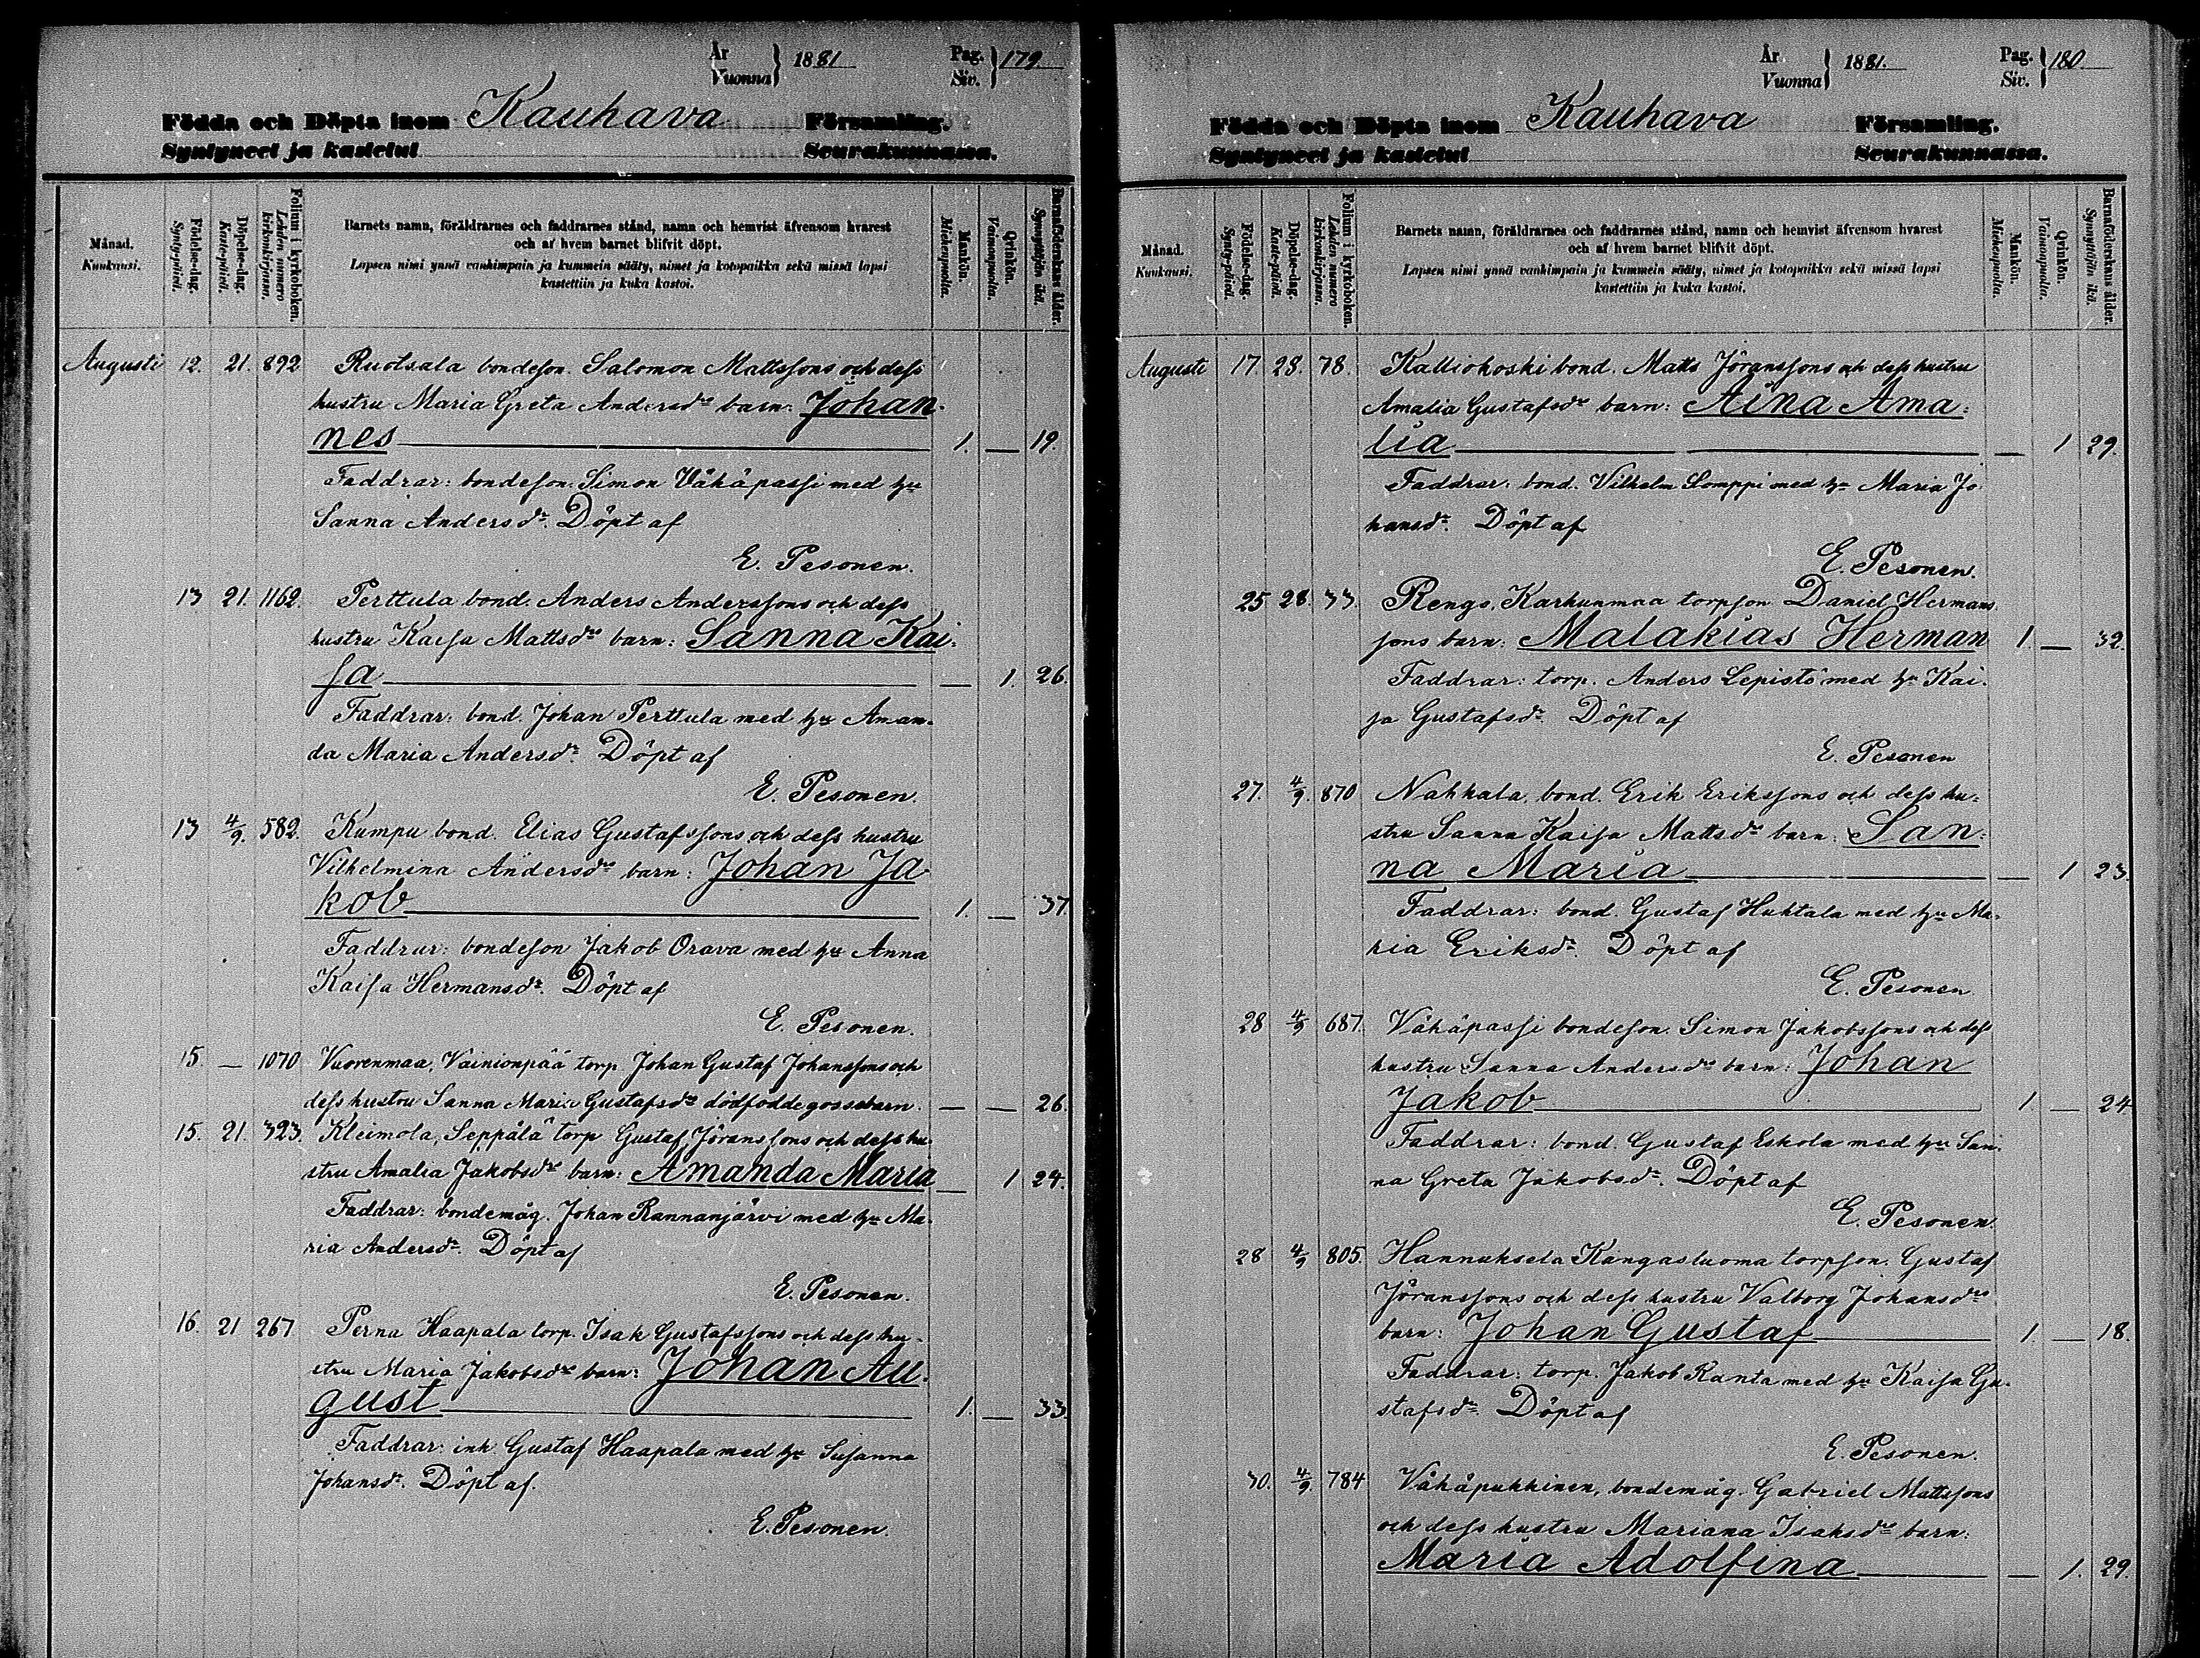 År
Vuonna } 1881
Pag.
Siv. } 179
Födda och Döpta inom Kauhava Församling.
Syntyneet ja kastetut Seurakunnassa.
Månad.
Kuukausi.
Födelse-dag.
Synty-päivä.
Döpelse-dag.
Kaste-päivä.
Folium i kyrkoboken.
Lehden numero kirkonkirjassa.
Barnets namn, föräldrarnes och faddrarnes stånd, namn och hemvist äfvensom hvarest
och af hvem barnet blifvit döpt.
Lapsen nimi ynnä vanhimpain ja kummein sääty, nimet ja kotopaikka sekä missä lapsi
kastettiin ja kuka kastoi.
Mankön.
Miehenpuolia.
Qvinkön.
Vaimonpuolia.
Barnaföderskans ålder.
Synnyttäjän ikä.
Augusti 12. 21. 892 Ruotsala bondeson. Salomon Mattssons och dess
hustru Maria Greta Andersdrs barn: Johan-
nes 1. — 19.
Faddrar: bondeson Simon Vähäpassi med hu
Sanna Andersdr. Döpt af
E. Pesonen.
13 21. 1162. Perttula bond. Anders Anderssons och dess
hustru Kaisa Mattsdrs barn: Sanna Kai-
sa — 1. 26.
Faddrar: bond. Johan Perttula med hu Aman-
da Maria Andersdr. Döpt af
E. Pesonen.
13 4/9. 582. Kumpu bond. Elias Gustafssons och dess hustru
Vilhelmina Andersdrs barn: Johan Ja
kob 1. — 37.
Faddrar: bondeson Jakob Orava med hu Anna
Kaisa Hermansdr. Döpt af
E. Pesonen.
15. — 1070 Vuorenmaa, Vainionpää torp. Johan Gustaf Johanssons och
dess hustru Sanna Maria Gustafsdrs dödfödde gossebarn. — — 26.
15. 21. 323. Kleimola, Seppälä torp Gustaf Jöranssons och dess hu-
stru Amalia Jakobsdrs barn: Amanda Maria — 1 24.
Faddrar: bondemåg. Johan Rannanjärvi med hu Ma-
ria Andersdr. Döpt af
E. Pesonen.
16. 21 267 Perna Haapala torp. Isak Gustafssons och dess hu-
stru Maria Jakobsdrs barn: Johan Au-
gust 1. — 33.
Faddrar: inh Gustaf Haapala med hu Susanna
Johansdr. Döpt af.
E. Pesonen.
År
Vuonna } 1881.
Pag.
Siv. } 180.
Födda och Döpta inom Kauhava Församling.
Syntyneet ja kastetut Seurakunnassa.
Månad.
Kuukausi.
Födelse-dag.
Synty-päivä.
Döpelse-dag.
Kaste-päivä.
Folium i kyrkoboken.
Lehden numero kirkonkirjassa.
Barnets namn, föräldrarnes och faddrarnes stånd, namn och hemvist äfvensom hvarest
och af hvem barnet blifvit döpt.
Lapsen nimi ynnä vanhimpain ja kummein sääty, nimet ja kotopaikka sekä missä lapsi
kastettiin ja kuka kastoi.
Mankön.
Miehenpuolia.
Qvinkön.
Vaimonpuolia.
Barnaföderskans ålder.
Synnyttäjän ikä.
Augusti 17. 28. 78. Kalliokoski bond. Matts Jöranssons och dess hustru
Amalia Gustafsdrs barn: Aina Ama-
lia — 1 29.
Faddrar: bond. Vilhelm Somppi med hu Maria Jo-
hansdr. Döpt af
E. Pesonen.
25 28. 33. Rengo, Karhunmaa torpson Daniel Hermans
sons barn: Malakias Herman 1. — 32.
Faddrar: torp. Anders Lepistö med hu Kai-
sa Gustafsdr. Döpt af
E. Pesonen
27. 4/9. 870 Nahkala, bond. Erik Erikssons och dess hu-
stru Sanna Kaisa Mattsdrs barn: San-
na Maria — 1 23.
Faddrar: bond. Gustaf Huhtala med hu Ma-
ria Eriksdr. Döpt af
E. Pesonen
28 4/9 687. Vähäpassi bondeson. Simon Jakobssons och dess
hustru Sanna Andersdrs barn: Johan
Jakob 1. — 24
Faddrar: bond. Gustaf Eskola med hu San-
na Greta Jakobsdr. Döpt af
E. Pesonen.
28 4/9 805. Hannuksela Kangasluoma torpson. Gustaf
Jöranssons och dess hustru Valborg Johansdrs
barn: Johan Gustaf 1. — 18.
Faddrar: torp. Jakob Ranta med hu Kaisa Gu-
stafsdr. Döpt af
E. Pesonen.
30. 4/9. 784 Vähäpukkinen, bondemåg. Gabriel Mattssons
och dess hustru Mariana Isaksdrs barn:
Maria Adolfina — 1. 29.